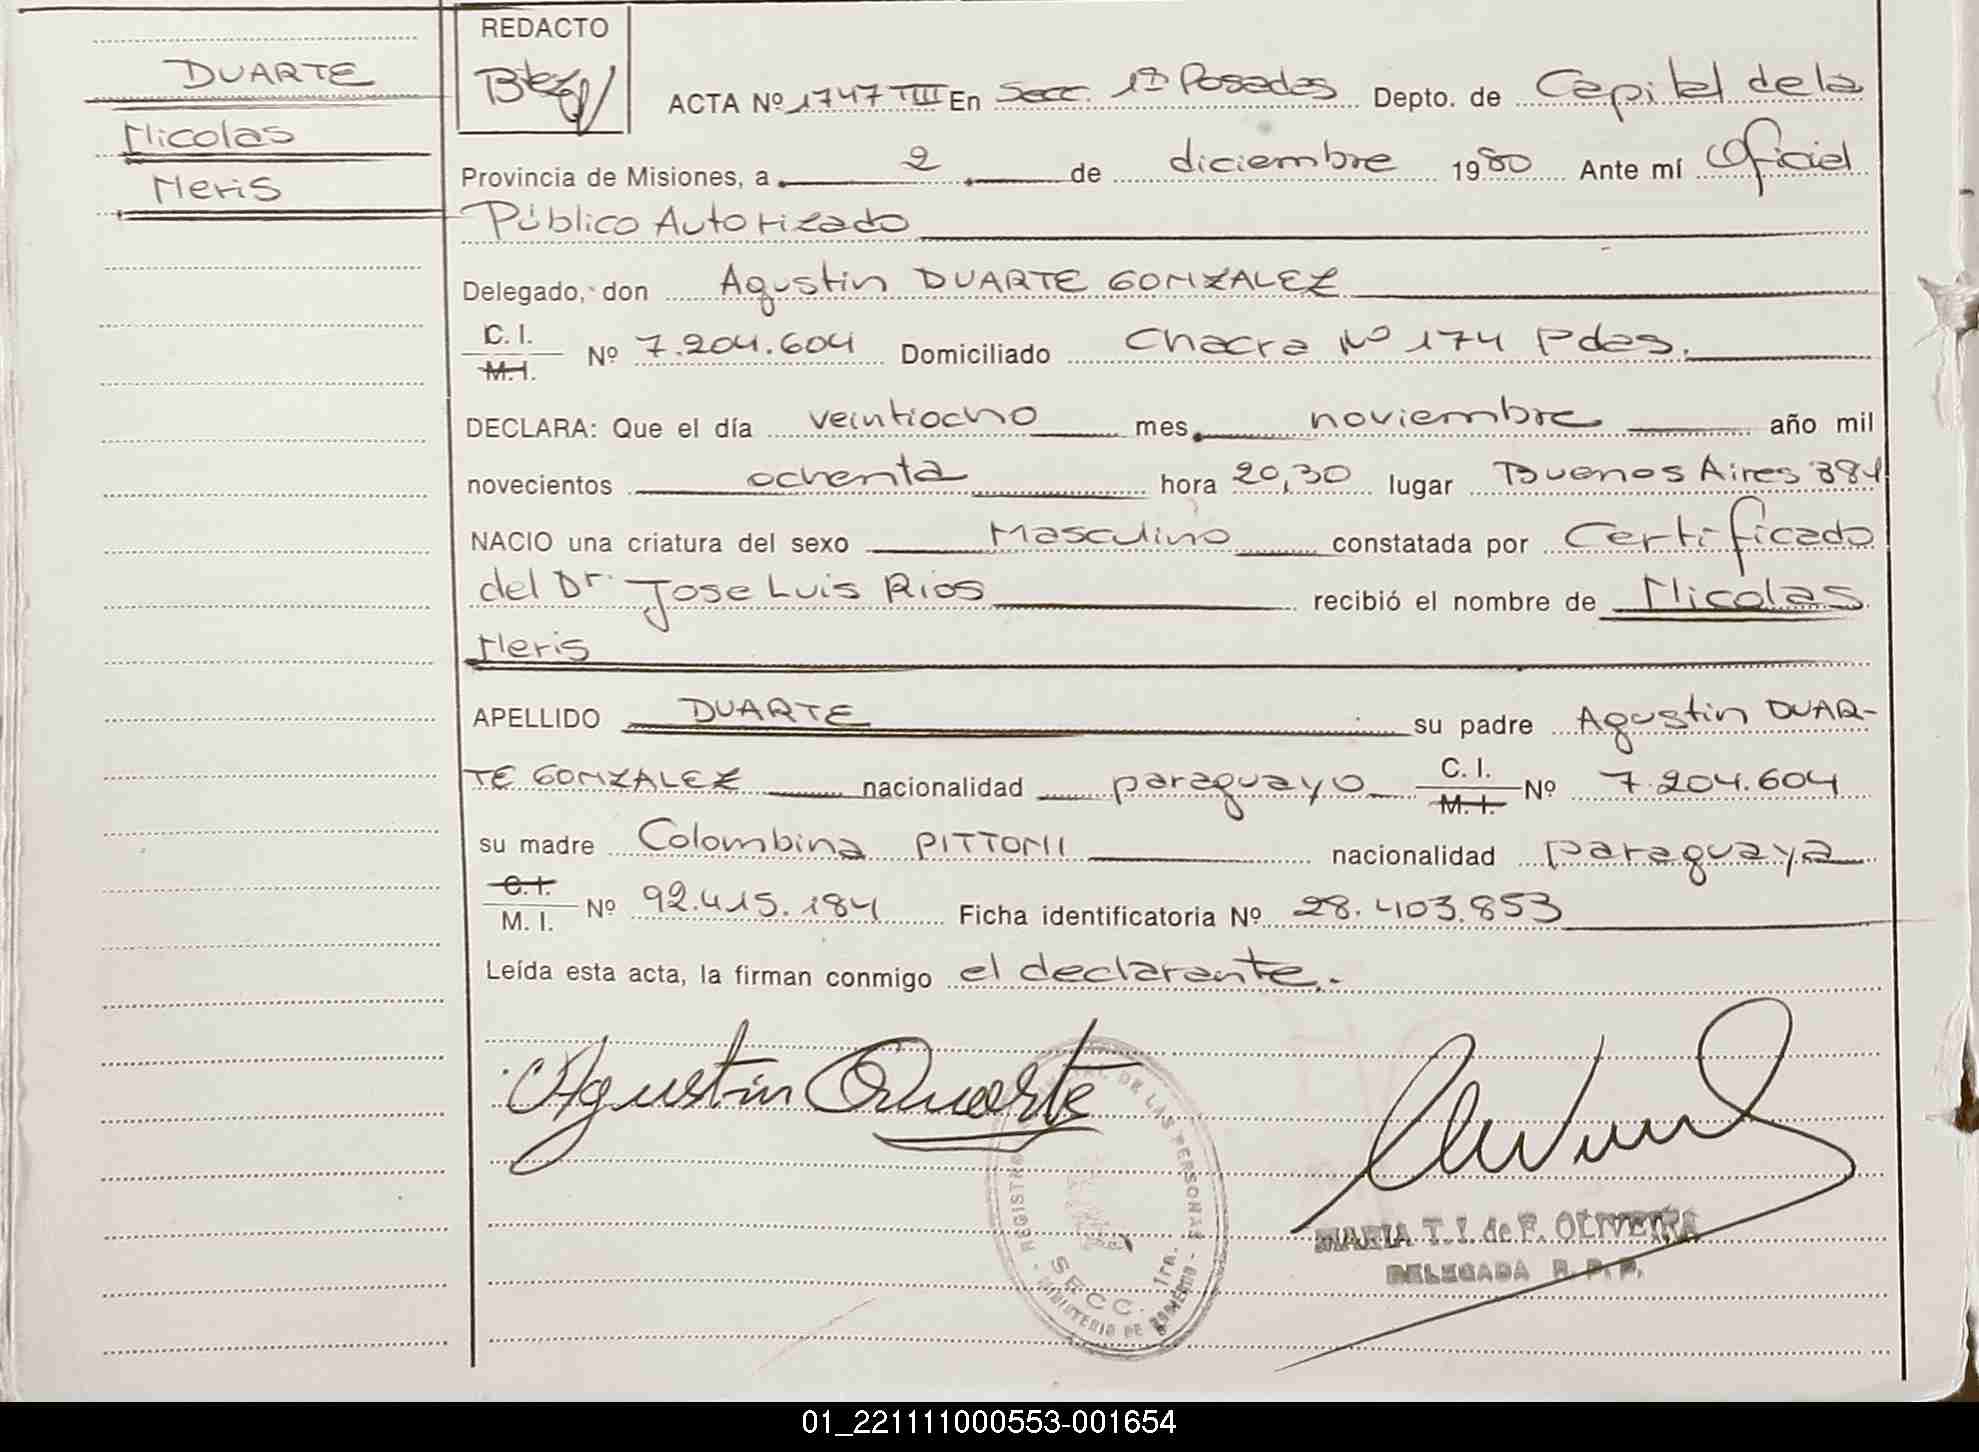 DUARTE
Nicolas
Neris
REDACTO
ACTA Nº 1747 TIII En Secc. 1ª Posadas Depto. de Capital de la
Provincia de Misiones, a 2 de diciembre 1980 Ante mí Oficial
Público Autorizado
Delegado, don Agustin DUARTE GONZALEZ
C. I.
M. I. Nº 7.204.604 Domiciliado Chacra Nº 174 Pdas.
DECLARA: Que el día veintiocho mes noviembre año mil
novecientos ochenta hora 20,30 lugar Buenos Aires 384
NACIO una criatura del sexo Masculino constatada por Certificado
del Dr. Jose Luis Rios recibió el nombre de Nicolas
Neris
APELLIDO DUARTE su padre Agustin DUAR-
TE GONZALEZ nacionalidad paraguayo C. I. M. I. Nº 7.204.604
su madre Colombina PITTONI nacionalidad paraguaya
C. I.
M. I. Nº 92.415.184 Ficha identificatoria Nº 28.403.853
Leída esta acta, la firman conmigo el declarante.-
Agustin Duarte
REGISTRO DE LAS PERSONAS
SECC. 1ra.
MINISTERIO DE GOBIERNO
MARIA T. I. de F. OLIVEIRA
DELEGADA R. P. P.
01_221111000553-001654